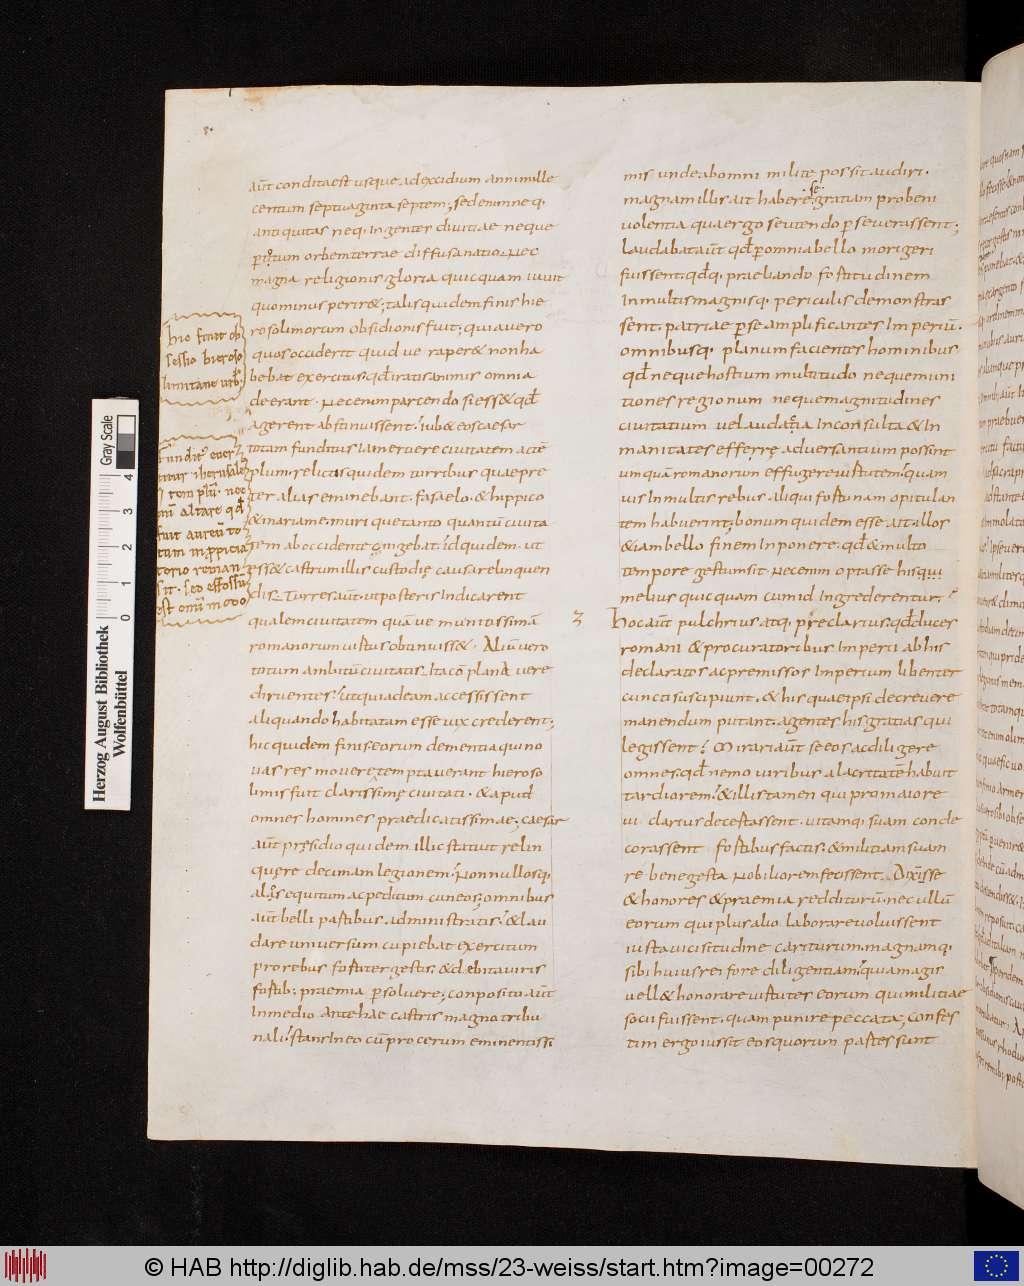 aut̅ condita est usque ad excidium anni mille
centum septuaginta septem; sed enim neq;
antiquitas neq; ingentes diuitiae neque
p totum orbem terrae diffusa natio. nec
magna religionis gloria quicquam iuuit
quominus perir&; talis quidem finis hie
rosolimorum obsidionis fuit; quia uero
quos occiderit quid ue raper& non ha
bebat exercitus. qd̅ iratis animis omnia
deerant. nec enim parcendo si ess& qd̅
agerent abstinuissent. iub& eos caesar
totam funditus iam eruere ciuitatem ac te̅
plum. relictis quidem turribus quae pre
ter alias eminebant. fasaelo. & hippico
& mariamme. muri que tanto quantu̅ ciuita
tem ab occidente cingebat. id quidem. ut
ess& castrum illis custodię causa relinquen
dis. Turres aut̅. ut posteris indicarent
qualem ciuitatem qua̅ ue munitissima̅
romanorum uirtus obtinuiss&. Aliu̅ uero
totum ambitu̅ ciuitatis. ita co̅planauere
diruentes. ut qui ad eam accessissent
aliquando habitatam esse uix crederent;
hic quidem finis eorum dementia qui no
uas res mouere temptauerant hieroso
limis fuit clarissimę ciuitati. & aput
omnes homines praedicatissimae; caesar
aut̅ pręsidio quidem illic statuit relin
quere decimam legionem. nonnullosq;
alos equitum ac peditum cuneos; omnibus
aut̅ belli partibus administratis. & lau
dare uniuersum cupiebat exercitum
pro rebus fortiter gestis. & debita uiris
fortib; praemia p soluere; conposito aut̅
in medio ante hac castris magno tribu
nali. stans in eo cu̅ procerum eminentissi
hic finit ob
sessio hieroso
limitane urb.
Funditus euer
titur iherusale
tem plu̅. nec
altare qd̅
fuit aureu̅ to
tum in propicia
torio reman
sit. sed effossu
est om̅i modo
mis unde ab omni milite possit audiri.
magnam illis ait habere se gratiam pro beni
uolentia qua ergo se utendo p seuerassent;
Laudabat aut̅ qd̅ p omnia bello morigeri
fuissent. qd̅q; praebendo fortitudinem
in multis magnisq; periculis demonstras
sent. patriae p se amplificantes imperiu̅.
omnibusq; planum facientes hominibus
qd̅ neque hostium multitudo neque muni
tiones regionum neque magnitudines
ciuitatum uel audatia inconsulta & in
manitates efferę aduersantium possint
umqua̅ romanorum effugere uirtutem. quam
uis in multis rebus aliqui fortunam opitulan
tem habuerint; bonum quidem esse ait allos
& iam bello finem inponere. qd̅ & multo
tempore gestum sit. nec enim optasse his qui
melius quicquam cum id ingrederentur.
Hoc aut̅ pulchrius atq; preclarius. qd̅ duces
romani & procuratoribus imperii ab his
declaratos ac premissos imperium libenter
cuncti suscipiunt. & his quae ipsi decreuere
manendum putant. agentes his gratias qui
legissent. Mirari aut̅ se eos ac diligere
omnes. qd̅ nemo uiribus alacritate̅ habuit
tardiorem. & illis tamen qui pro maiore
ui clarius decertassent. uitamq; suam conde
corassent fortibus factis. & militiam suam
re bene gesta nobiliorem fecissent. Dixisse
& honores & praemia redditurum. nec ullu̅
eorum qui plus alio laborare uoluissent
iusta uicisitudine cariturum. magnamq;
sibi huius rei fore diligentiam. quia magis
uell& honorare uirtutes eorum qui militiae
socii fuissent. quam punire peccata; Confes
tim ergo iussit eos quorum partes sunt
Gray Scale
0 1 2 3 4
Herzog August Bibliothek
Wolfenbüttel
© HAB http://diglib.hab.de/mss/23-weiss/start.htm?image=00272